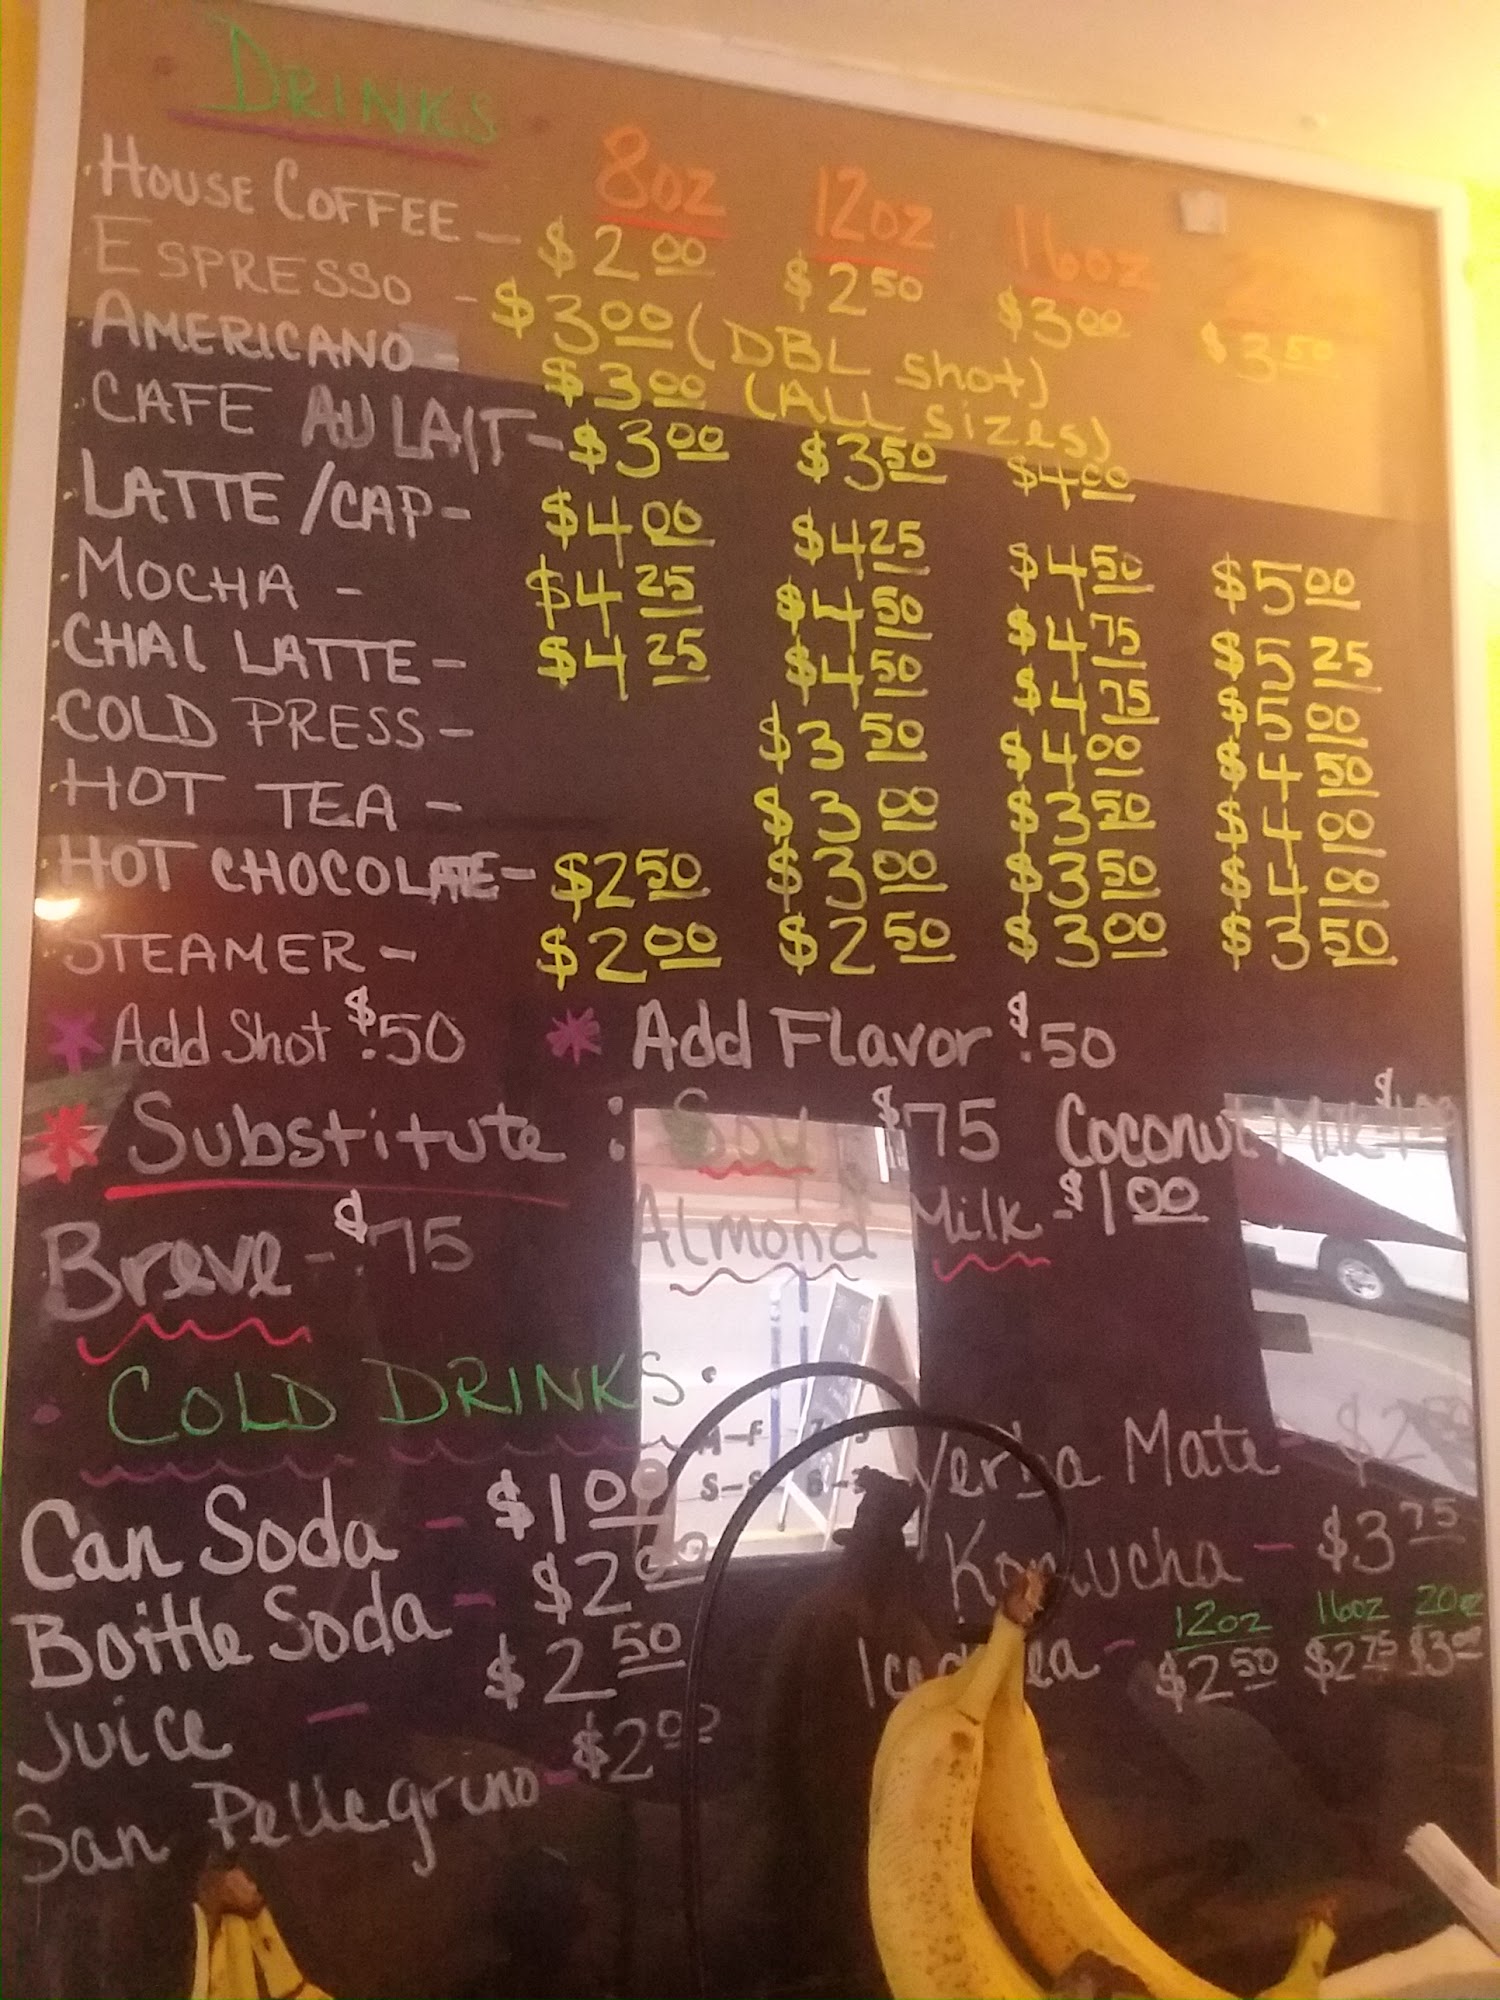 DRINKS
8oz 12oz 16oz
HOUSE COFFEE - $2.00 $2.50 $3.00 $3.50
ESPRESSO - $3.00 (DBL shot)
AMERICANO - $3.00 (ALL sizes)
CAFE AU LAIT - $3.00 $3.50 $4.00
LATTE/CAP - $4.00 $4.25 $4.50 $5.00
MOCHA - $4.25 $4.50 $4.75 $5.25
CHAI LATTE - $4.25 $4.50 $4.75 $5.00
COLD PRESS - $3.50 $4.00 $4.50
HOT TEA - $3.00 $3.50 $4.00
HOT CHOCOLATE - $2.50 $3.00 $3.50 $4.00
STEAMER - $2.00 $2.50 $3.00 $3.50
* Add Shot $.50 * Add Flavor $.50
* Substitute: Soy $75 Coconut Milk $1.00
Breve - $75 Almond Milk - $1.00
COLD DRINKS
Can Soda - $1.00 Yerba Mate - $2.50
Bottle Soda - $2.00 Komucha - $3.75
12oz 16oz 20oz
Juice - $2.50 Iced - $2.50 $2.75 $3.00
San Pellegrino - $2.00